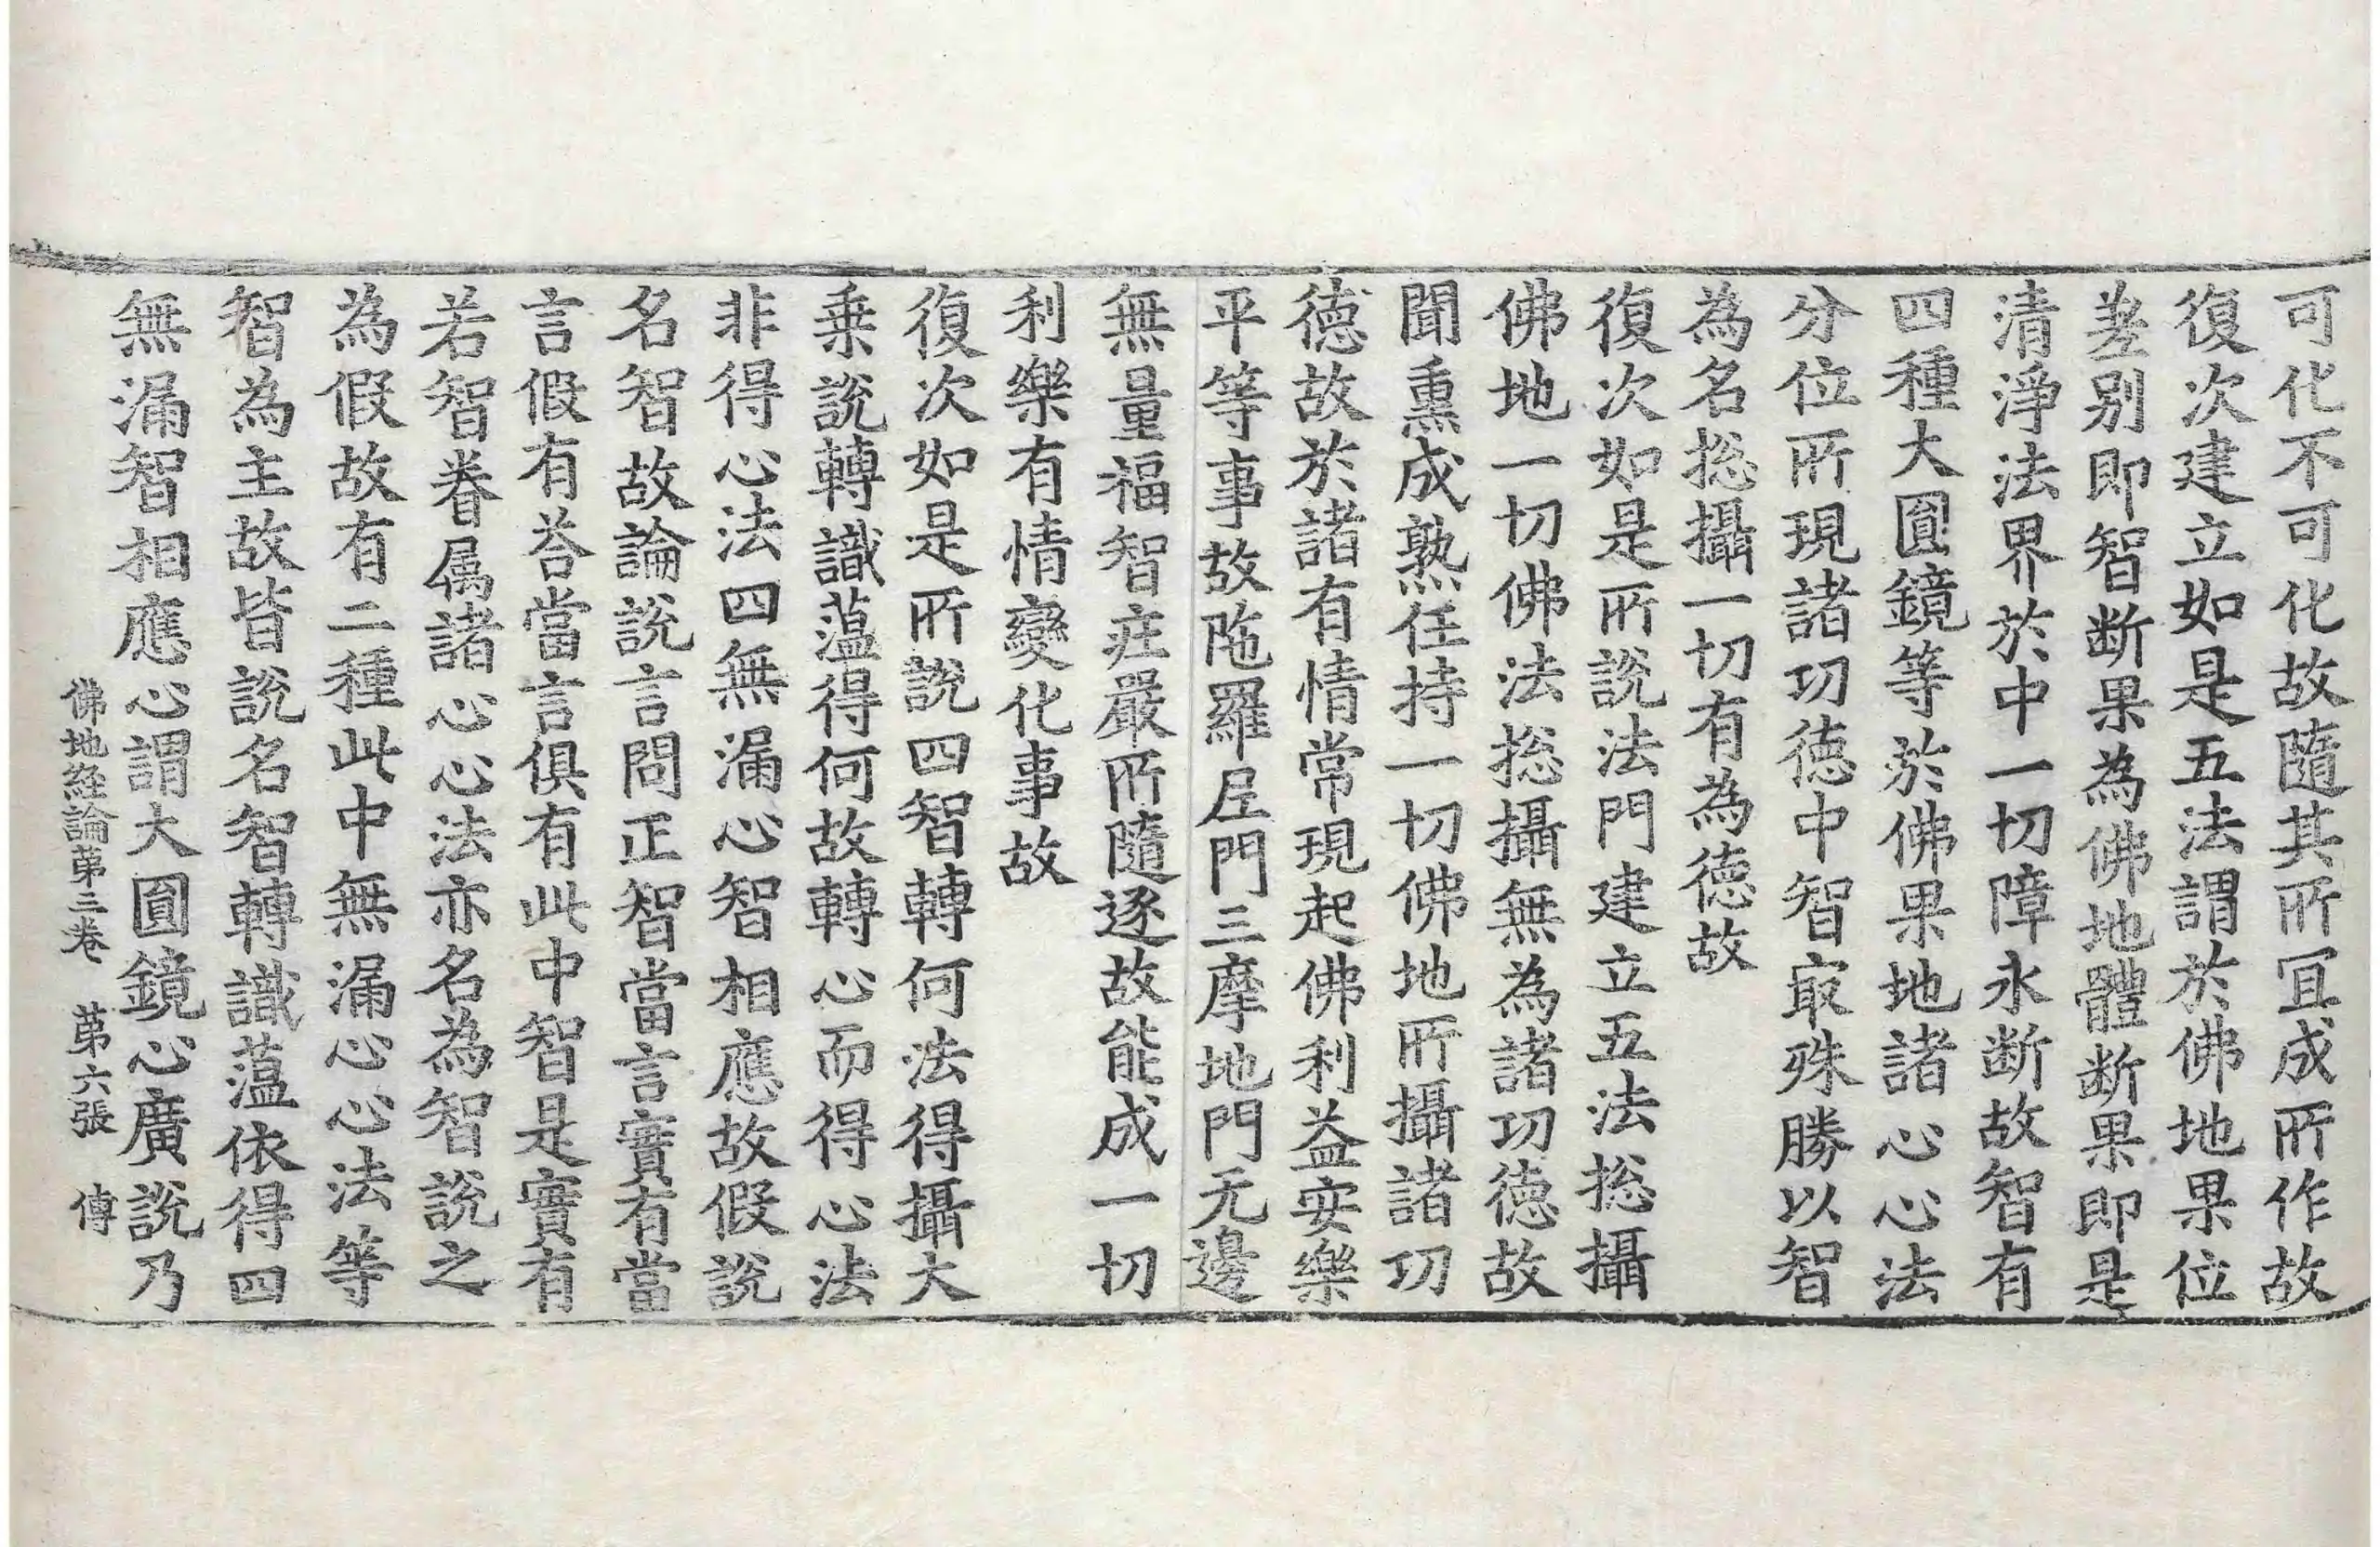 可化不可化故隨其所冝成所作故
復次建立如是五法謂於佛地果位
差别即智断果為佛地體断果即是
清淨法界於中一切障永断故智有
四種大圎鏡等於佛果地諸心心法
分位所現諸功德中智㝡殊勝以智
為名捴攝一切有為德故
復次如是所說法門建立五法捴攝
佛地一切佛法捴攝無為諸功德故
聞熏成熟任持一切佛地所攝諸功
德故於諸有情常現起佛利益安樂
平等事故陁羅𡰱門三摩地門无邊
無量福智庄嚴所隨逐故能成一切
利樂有情變化事故
復次如是所說四智轉何法得攝大
乗說轉識薀得何故轉心而得心法
非得心法四無漏心智相應故假說
名智故論說言問正智當言實有當
言假有荅當言俱有此中智是實有
若智眷属諸心心法亦名為智說之
為假故有二種此中無漏心心法等
智為主故皆說名智轉識薀依得四
無漏智相應心謂大圎鏡心廣說乃
佛地経論第三卷 第六張 傳